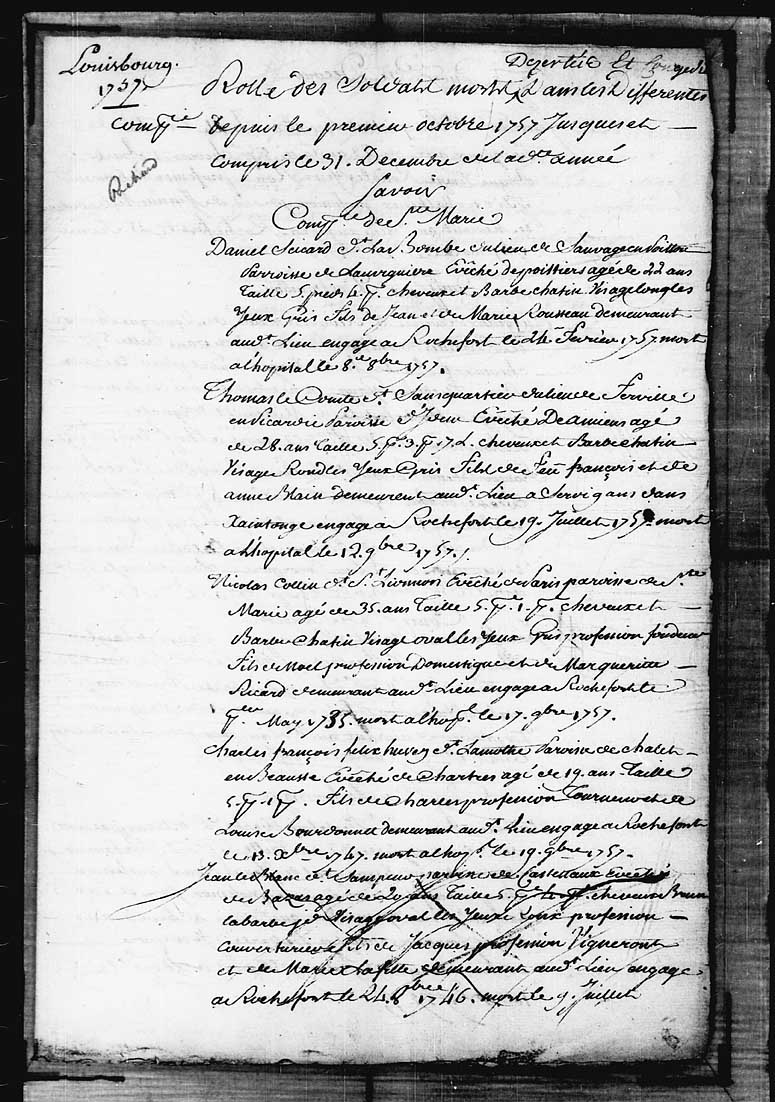 Louisbourg.
1757
Desertés Et Congediés
Rolle des Soldats morts, dans les Differentes
Comp.ie Depuis le premier octobre 1757 Jusques et
Compris le 31. Decembre de lad.e année
Savoir
Comp.ie de S.te Marie
Daniel Sicard d.t La Bombe du lieu de Sauvage en Poittou
Parroisse de Evêché de poittiers agé de 22 ans
Taille 5. pieds 4. p. cheveux et Barbe chatin Visage long les
Yeux Gris Fils de Jean et de Marie Rousseau demeurant
aud.t Lieu engagé a Rochefort le 24 Fevrier 1757 mort
a l'hopital le 8.e 8bre 1757.
Thomas le Comte d.t Sansquartier du lieu de Ferville
en Picardie Paroisse d'Idem Evêché De amiens agé
de 28. ans Taille 5. p. 3. p. 7. L. cheveux et Barbe chatin
Visage Rond les Yeux Gris Fils de Feu françois et de
anne Blain demeurent aud.t Lieu a Servi 9 ans dans
Xaintonge engagé a Rochefort le 19. Juillet 1757. mort
a l'hopital le 12. 9bre 1757.
Nicolas Collin d.t S.t Evêché de Paris paroisse de S.te
Marie agé de 35. ans Taille 5. p. 1. p. cheveux et
Barbe Chatin Visage oval les Yeux Gris profession fondeur
Fils de Noel profession Domestique et de Margueritte
Sicard demeurant aud.t Lieu engagé a Rochefort le
p.er May 1735. mort a l'hop.l le 17. 9bre 1757.
Charles françois felix huvey d.t Lamothe Paroisse de Chalet
en Beausse Evêché de Chartres agé de 19. ans Taille
5. p. 1 p. Fils de Charles profession Tourneur et de
Louise Bourdonnet demeurant aud.t Lieu engagé a Rochefort
le 13. Xbre 1747. mort a l'hop.l le 19. 9bre 1757.
Jean le Blanc d.t Sanspeur paroisse de Evêché
de Bazas agé de 29 ans Taille 5. p. 4 p. cheveux Brun
la barbe id. Visage oval les Yeux Roux profession
Couverturier Fils de Jacques profession Vigneront
et de Marie Lafitte demeurant aud.t Lieu engagé
a Rochefort le 24. 8bre 1746. mort le 9. Juillet